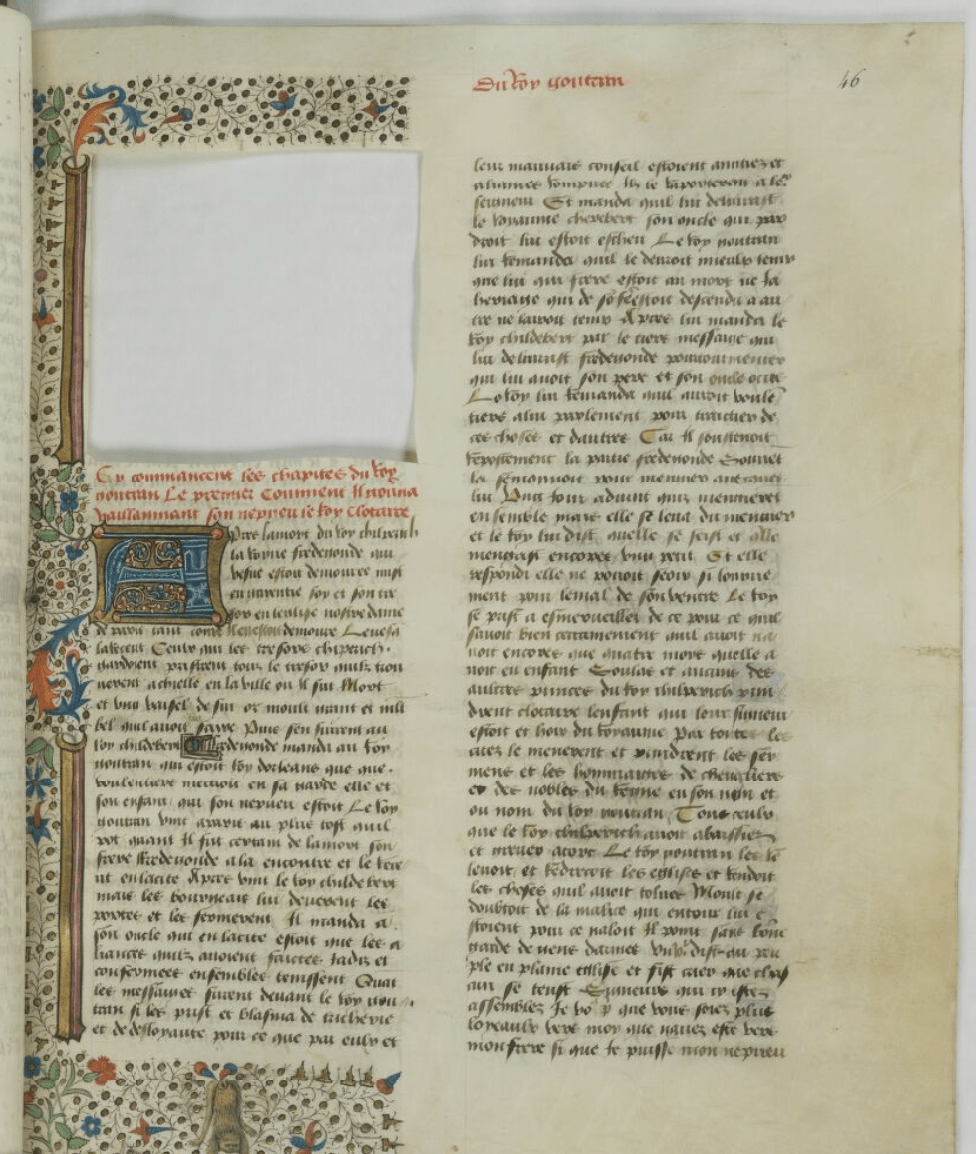 Du Roy gontran
46
Cy commancent les chapitres du Roy
gontran Le premier Comment Il trouva
vaillanmant son nepveu le roy clotaire
Apres la mort du roy chilperich
la royne fredegonde qui
vefve estoit demouree mist
en garentie soy et son tre
sor en leglise nostre dame
de paris tant comme demoure Leuesq
Ceulx qui les tresors chilperich
gardoient pristrent tout le tresor quilz trou
uerent achielle en la ville ou Il fut Mort
et vng vaissel de fin or moult grant et moult
bel quil auoit Puis sen fuirent au
roy childebert fredegonde manda au Roy
gontran qui estoit roy dorleans que que
voulentiers mettroit en sa garde elle et
son enfant qui son nepveu estoit Le Roy
gontran vint a paris au plus tost quil
pot quant Il fut certain de la mort son
frere fredegonde a la encontre et le rece
ut en la cite Apres vint le roy childebert
mais les bourgeois lui deveerent les
portes et les fermerent Il manda a
son oncle qui en la cite estoit que les a
liances quilz auoient faictes Jadiz et
confermees ensembles tenissent Quant
les messaiges furent deuant le roy gon
tran si les prist et blasma de tricherie
et de desloyaute pour ce que par eulx et
leur mauuais conseil estoient amitiez et
aliances rompues Ilz se raporterent a le
seigneur Et manda quil lui deliurast
le royaume cherebert son oncle qui par
droit lui estoit escheu Le roy gontran
lui remanda quil le deuoit mieulx tenir
que lui qui frere estoit au mort ne Ja
heritaige qui de estoit descendu a au
tre ne lairoit tenir Apres lui manda le
roy childebert par le tiers messaige qui
lui deliurast fredegonde pour tourmenter
qui lui auoit son pere et son oncle occis
Le roy lui remanda quil auroit voulen
tiers a lui parlement pour traictier de
ces choses et dautres Car Il soustenoit
la partie fredegonde Souuent
la semonnoit pour mengier auecques
lui Vng Jour aduint quilz mengierent
ensemble mais elle se leua du mengier
et le roy lui dist quelle se seist et quelle
mengast encores vng petit Et elle
respondi elle ne pouoit seoir si longue
ment pour lenfant de son ventre Le roy
se prist a esmerueillier de ce pour ce quil
sauoit bien certainement quil auoit na
uoit encores que quatre moys quelle a
uoit eu enfant Soulas et aucuns des
aultres princes du roy chilperich prin
drent clotaire lenfant qui leur seigneur
estoit et hoir du royaume par toutes les
citez le menerent et prindrent les ser
mens et les hommaiges de cheualiers
et des nobles du regne en son nom et
ou nom du roy gontran Tous ceulx
que le roy chilperich auoit abaissiez
et greuez a tort Le roy gontran les re
leuoit et redrecoit les eglises et rendoit
les choses quil auoit tolues Moult se
doubtoit de la malice qui entour lui e
stoient pour ce naloit Il point sans bonne
garde de gens darmes Vng Jour dist au peu
ple en plaine eglise et fist crier que chas
cun se teust Seigneurs qui cy estes
assemblez Je vous pry que vous soiez plus
loyaulx vers moy que nauez este vers
mon frere si que Je puisse mon nepveu